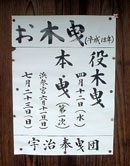 お木曳(平成18年)
役木曳
四月十二日(水)
本曳(第一次)
浜参宮六月十一日(日)
七月二十三日(日)
宇治奉曳団